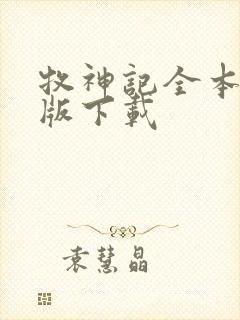 牧神記全本
版下載
袁慧晶